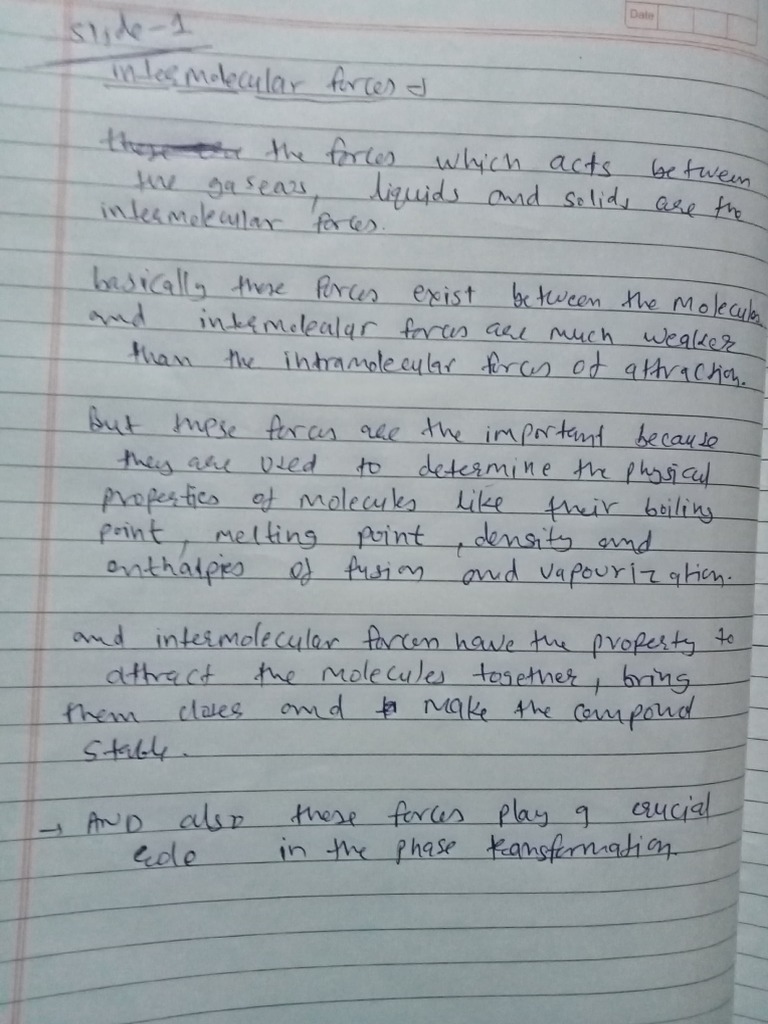 Date
Slide-1
intermolecular forces →
the forces which acts between
the gasears, liquids and solids are the
intermolecular forces.
basically these forces exist between the molecules
and intermolealar forces are much weaker
than the intramolecular forces of attraction.
But these forces are the important because
they are used to determine the physical
properties of molecules like their boiling
point, melting point, density and
enthalpies of fusion and vapourization.
and intermolecular forces have the property to
attract the molecules together, bring
them closer and make the compound
stable.
→ AND also these forces play a crucial
role in the phase transformation.